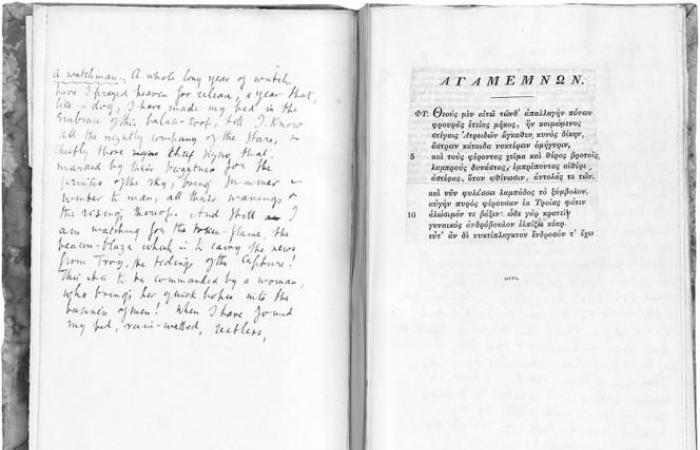 A watchman: A whole long year of watch
have I prayed heaven for release, a year that,
like a dog, I have made my bed in the
embrace of this palace-roof, till I know
all the nightly company of the stars, &
chiefly those signs chief signs that
marked by their brightness for the
princes of the sky, bring summer &
winter to man, all their wanings &
the risings thereof. And still I
am watching for the token-flame, the
beacon-blaze which is to carry the news
from Troy, the tidings of the capture!
This it is to be commanded by a woman,
who brings her quick hopes into the
business of men! When I have found
my bed, rain-wetted, restless,
ΑΓΑΜΕΜΝΩΝ.
ΦΥ. Θεοὺς μὲν αἰτῶ τῶνδ' ἀπαλλαγὴν πόνων
φρουρᾶς ἐτείας μῆκος, ἣν κοιμώμενος
στέγαις Ἀτρειδῶν ἄγκαθεν, κυνὸς δίκην,
ἄστρων κάτοιδα νυκτέρων ὁμήγυριν,
5 καὶ τοὺς φέροντας χεῖμα καὶ θέρος βροτοῖς
λαμπροὺς δυνάστας, ἐμπρέποντας αἰθέρι,
ἀστέρας, ὅταν φθίνωσιν, ἀντολάς τε τῶν.
καὶ νῦν φυλάσσω λαμπάδος τὸ ξύμβολον,
αὐγὴν πυρὸς φέρουσαν ἐκ Τροίας φάτιν
10 ἁλώσιμόν τε βάξιν· ὧδε γὰρ κρατεῖν
γυναικὸς ἀνδρόβουλον ἐλπίζω κέαρ.
εὖτ' ἂν δὲ νυκτίπλαγκτον ἔνδροσόν τ' ἔχω